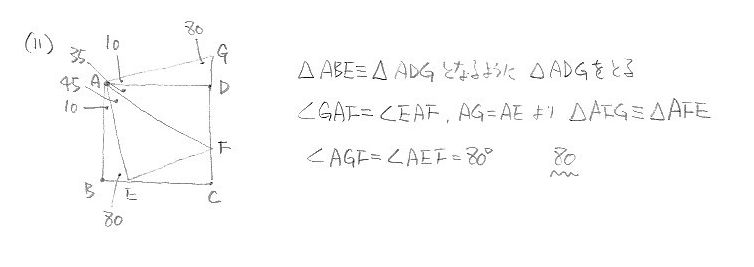 (11)
80
10
G
35
A
D
45
10
F
B
E
C
80
△ABE≡△ADGとなるように△ADGをとる
∠GAF=∠EAF, AG=AEより△AFG≡△AFE
∠AGF=∠AEF=80° 80